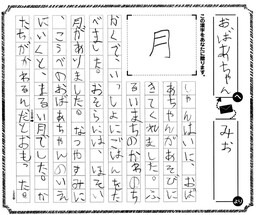 おばあちゃん へ
みお より
この漢字をあなたに贈ります。
月
しゃんはいに、おば
あちゃんがあそびに
きてくれました。ふ
るいまちのかわのち
かくで、いっしょにごはんをた
べました。おそらには、ほそい
月がありました。なつやすみに
、こうべのおばあちゃんのいえ
にいくと、まるい月でした。か
たちがかわるんだとおもった。